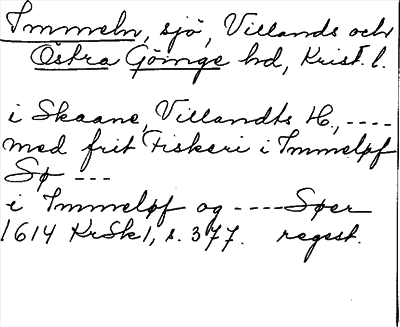 Immeln, sjö, Villands och
Östra Göinge hd, Krist. l.
i Skaane, Villandts H., ----
med frit Fiskeri i Immeløf
Sø ---
i Immeløf og ---- Søer
1614 KrSk1, s. 377. regest.